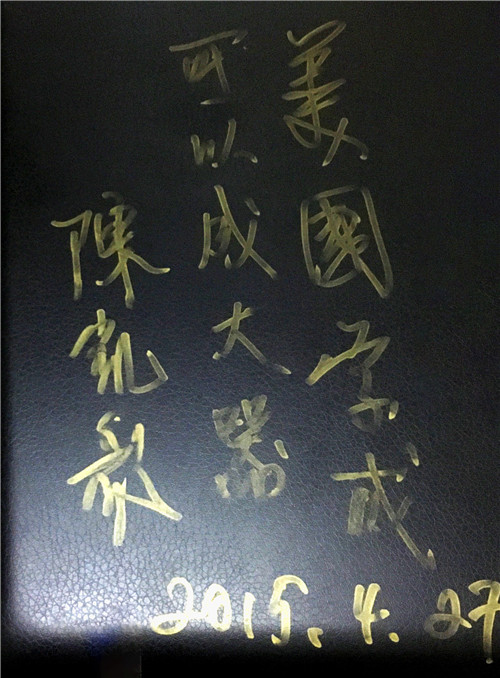 美國学成
可以成大器
陳凱歌
2015.4.27